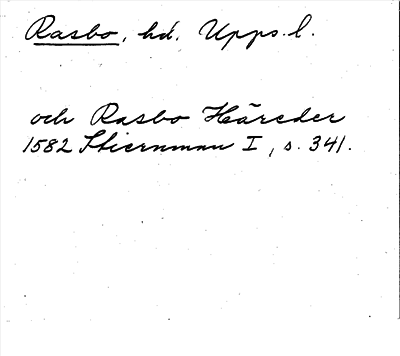 Rasbo, hd. Upps. l.
och Rasbo Häreder
1582 Stiernman I, s. 341.